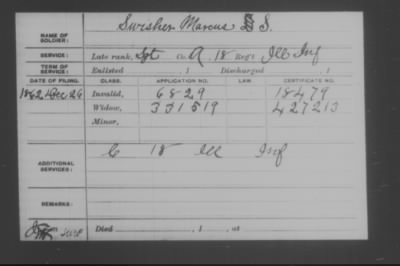 NAME OF SOLDIER: Swisher Marcus S.
SERVICE: Late rank, Sgt Co. A, 18 Reg't Ill Inf
TERM OF SERVICE: Enlisted , 1 Discharged , 1
DATE OF FILING. CLASS. APPLICATION NO. LAW. CERTIFICATE NO.
1862 Dec 26 Invalid, 6829 18479
Widow, 331519 427213
Minor,
ADDITIONAL SERVICES: C 18 Ill Inf
REMARKS:
Died , 1 , at